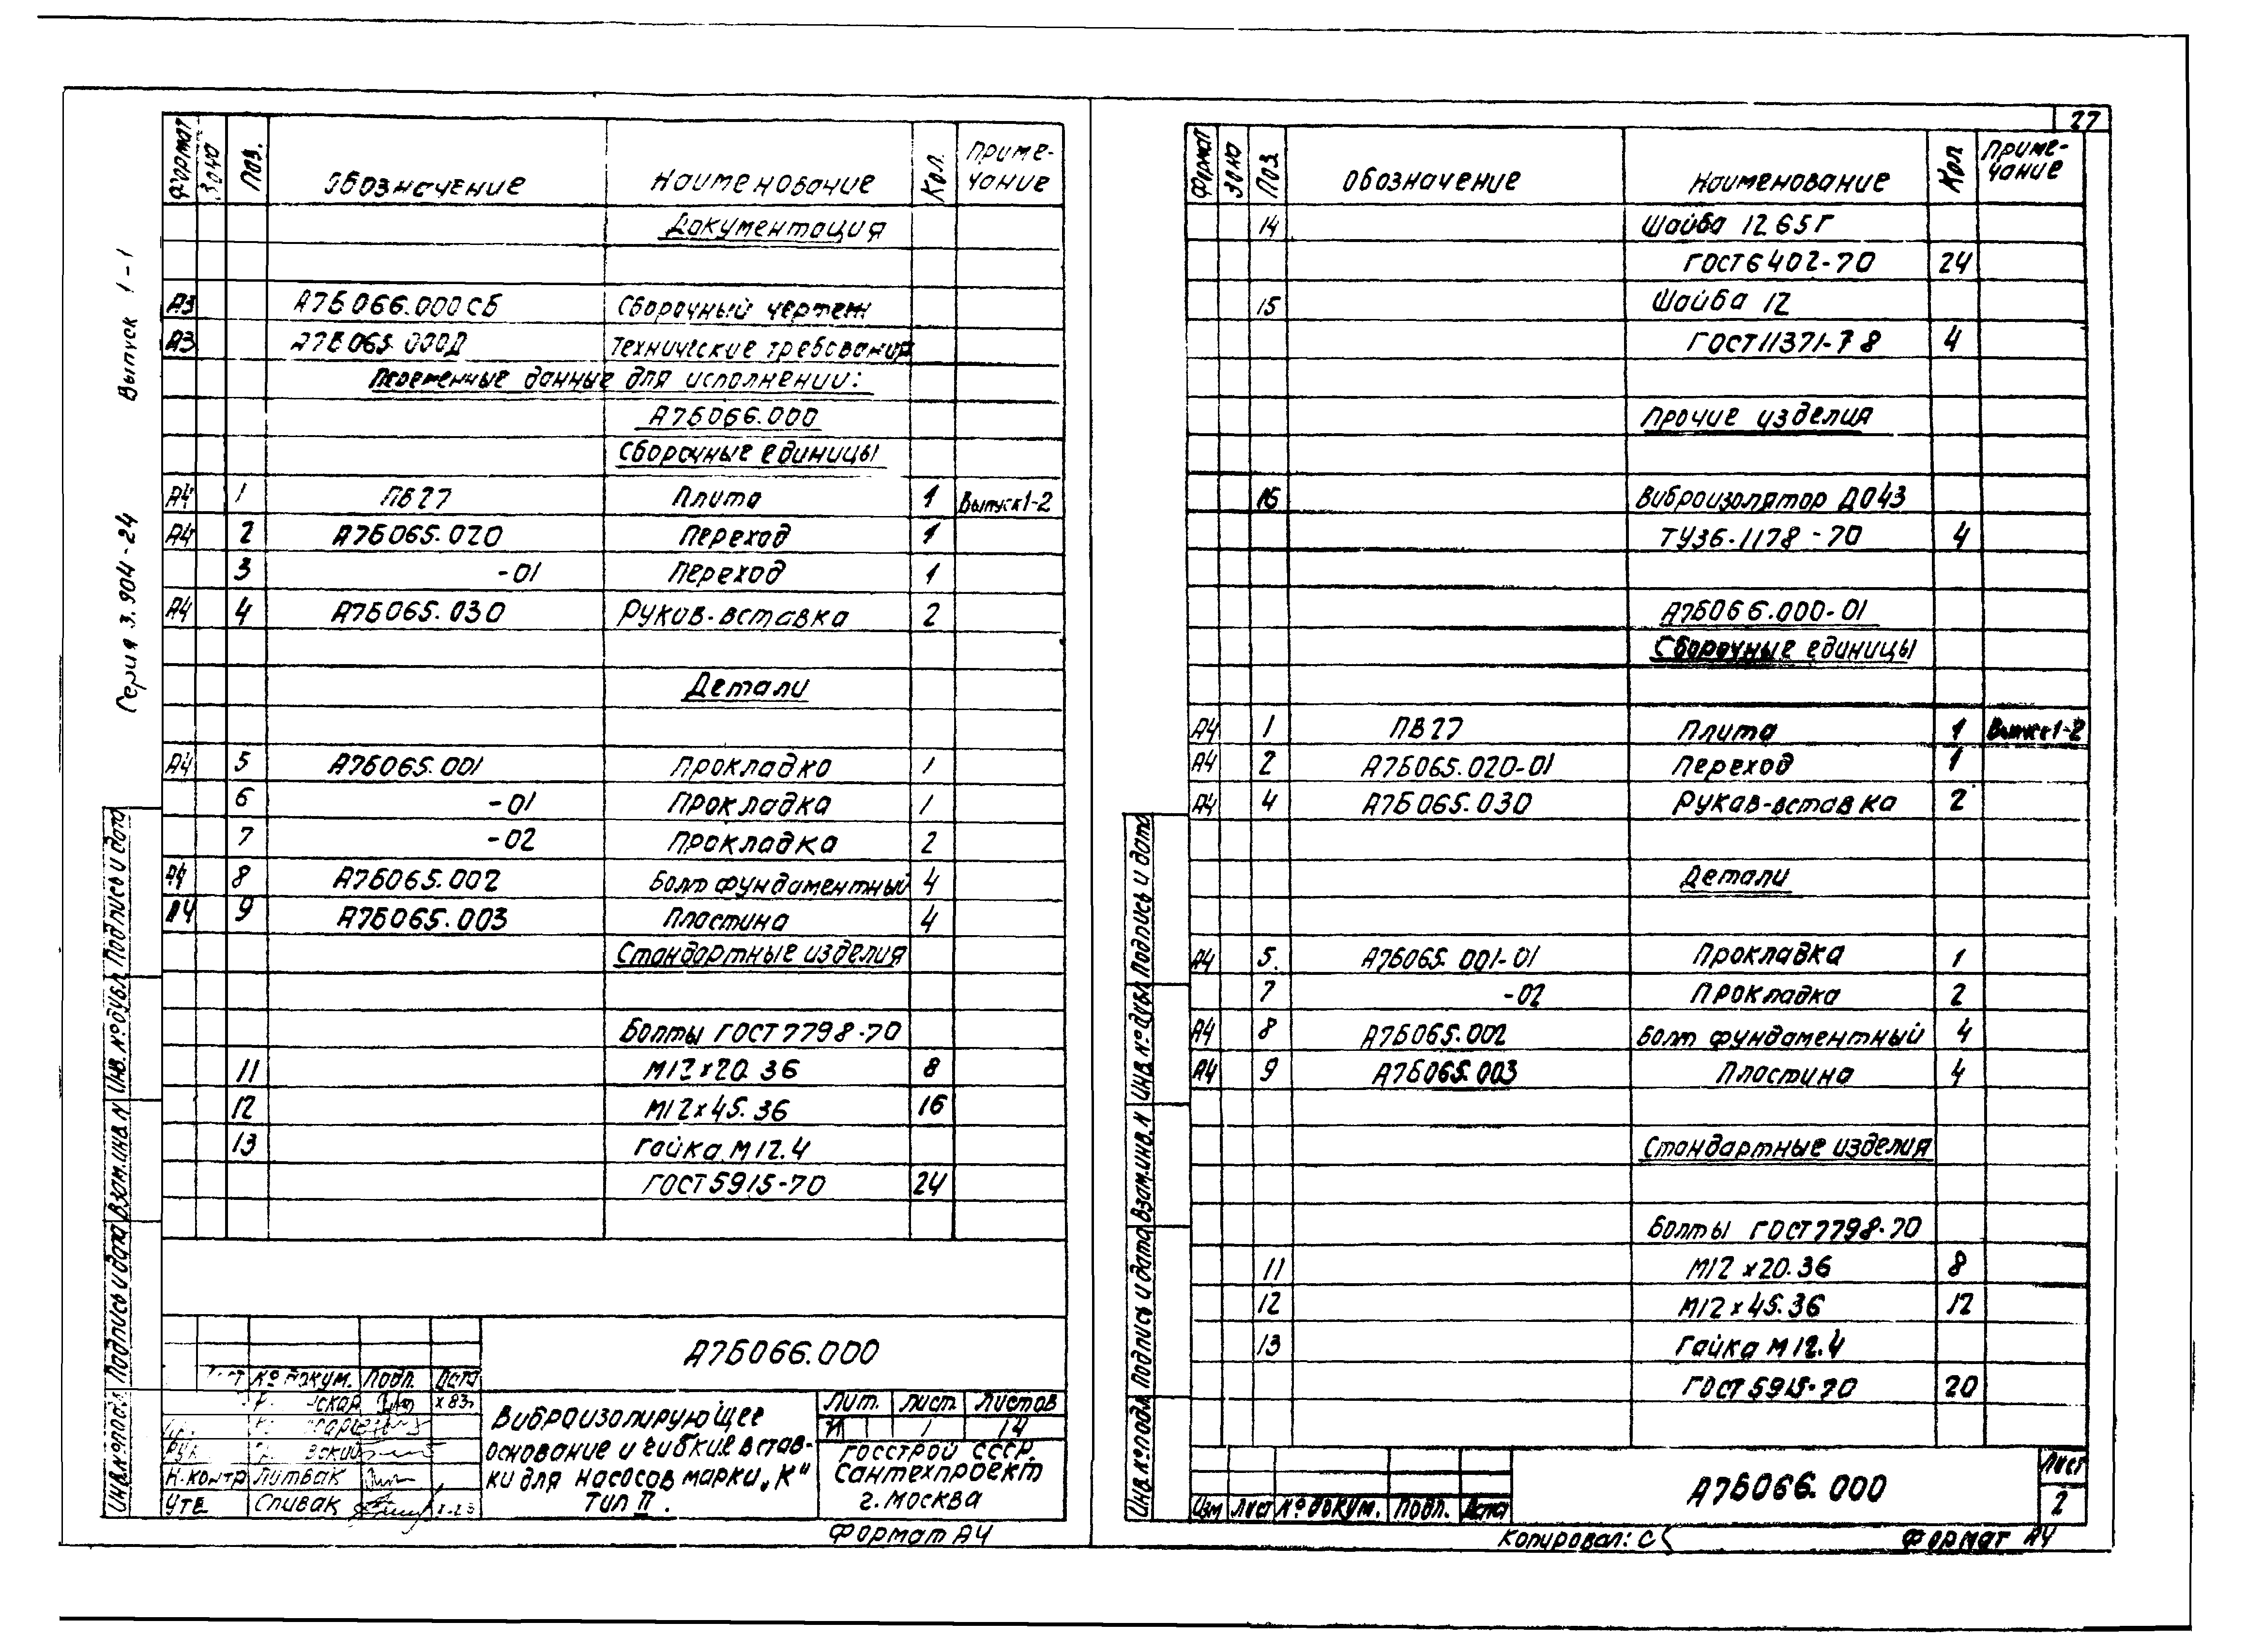 27
Серия 3.904-24 Выпуск 1-1
Формат Зона Поз. Обозначение Наименование Кол. Приме-чание
Документация
А3 А7Б066.000 СБ Сборочный чертеж
А3 А7Б065.000Д Технические требования
Переменные данные для исполнений:
А7Б066.000
Сборочные единицы
А4 1 ПВ27 Плита 1 Выпуск 1-2
А4 2 А7Б065.020 Переход 1
3 -01 Переход 1
А4 4 А7Б065.030 Рукав-вставка 2
Детали
А4 5 А7Б065.001 Прокладка 1
6 -01 Прокладка 1
7 -02 Прокладка 2
А4 8 А7Б065.002 Болт фундаментный 4
А4 9 А7Б065.003 Пластина 4
Стандартные изделия
Болты ГОСТ 7798-70
11 М12х20.36 8
12 М12х45.36 16
13 Гайка М12.4
ГОСТ 5915-70 24
Инв.№подл. Подпись и дата Взам.инв.N Инв.№дубл. Подпись и дата
А7Б066.000
№ докум. Подп. Дата
х 83
Н.контр Литвак
Утв Спивак
Виброизолирующее
основание и гибкие встав-
ки для насосов марки „К"
тип II.
Лит. Лист Листов
И 1 14
Госстрой СССР
Сантехпроект
г. Москва
Формат А4
Формат Зона Поз. Обозначение Наименование Кол Приме-чание
14 Шайба 12 65Г
ГОСТ 6402-70 24
15 Шайба 12
ГОСТ 11371-78 4
Прочие изделия
16 Виброизолятор ДО43
ТУ36-1178-70 4
А7Б066.000-01
Сборочные единицы
А4 1 ПВ27 Плита 1 Выпуск 1-2
А4 2 А7Б065.020-01 Переход 1
А4 4 А7Б065.030 Рукав-вставка 2
Детали
А4 5. А7Б065.001-01 Прокладка 1
7 -02 Прокладка 2
А4 8 А7Б065.002 Болт фундаментный 4
А4 9 А7Б065.003 Пластина 4
Стандартные изделия
Болты ГОСТ 7798-70
11 М12 х20.36 8
12 М12х45.36 12
13 Гайка М12.4
ГОСТ 5915-70 20
Инв.№подл. Подпись и дата Взам.инв.N Инв.№дубл. Подпись и дата
Изм Лист № докум. Подп. Дата
А7Б066.000
Лист
2
Копировал: Формат А4